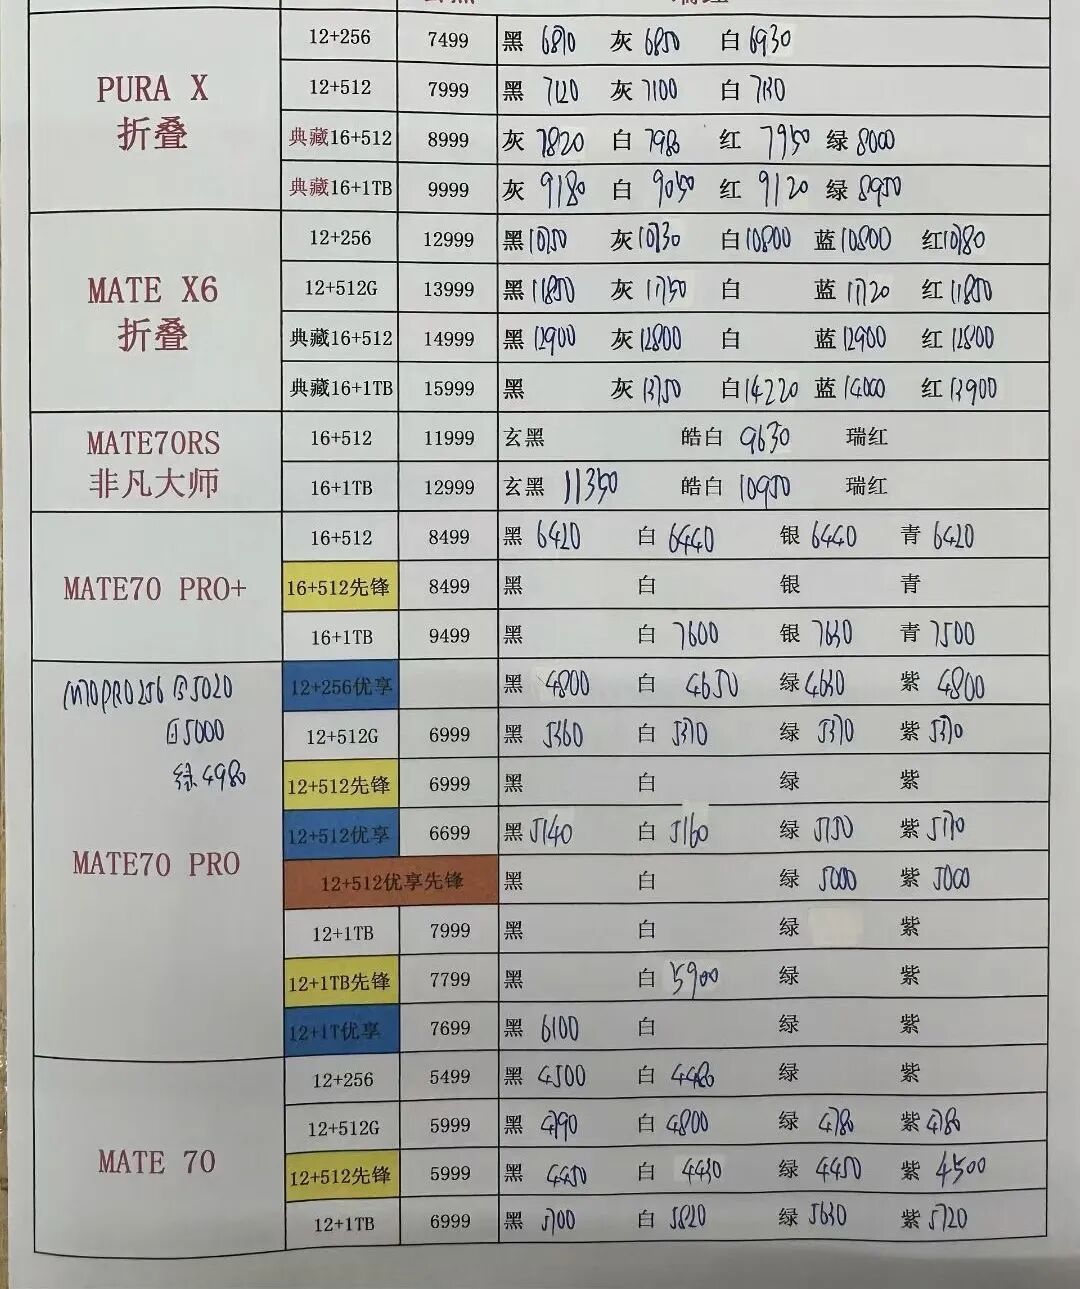 PURA X
折叠
12+256 7499 黑 6810 灰 6850 白 6930
12+512 7999 黑 7120 灰 7100 白 7130
典藏16+512 8999 灰 7820 白 7980 红 7950 绿 8000
典藏16+1TB 9999 灰 9180 白 9050 红 9120 绿 8950
MATE X6
折叠
12+256 12999 黑 10750 灰 10730 白 10800 蓝 10800 红 10780
12+512G 13999 黑 11850 灰 11750 白 蓝 11720 红 11850
典藏16+512 14999 黑 12900 灰 12800 白 蓝 12900 红 12800
典藏16+1TB 15999 黑 灰 13750 白 14220 蓝 14000 红 13900
MATE70RS
非凡大师
16+512 11999 玄黑 皓白 9630 瑞红
16+1TB 12999 玄黑 11350 皓白 10950 瑞红
MATE70 PRO+
16+512 8499 黑 6420 白 6440 银 6440 青 6420
16+512先锋 8499 黑 白 银 青
16+1TB 9499 黑 白 7600 银 7630 青 7500
M70PRO256 5020
白5000
绿4980
MATE70 PRO
12+256优享 黑 4800 白 4650 绿 4630 紫 4800
12+512G 6999 黑 5360 白 5370 绿 5370 紫 5370
12+512先锋 6999 黑 白 绿 紫
12+512优享 6699 黑 5140 白 5160 绿 5150 紫 5170
12+512优享先锋 黑 白 绿 5000 紫 5000
12+1TB 7999 黑 白 绿 紫
12+1TB先锋 7799 黑 白 5900 绿 紫
12+1T优享 7699 黑 6100 白 绿 紫
MATE 70
12+256 5499 黑 4500 白 4480 绿 紫
12+512G 5999 黑 4790 白 4800 绿 4780 紫 4780
12+512先锋 5999 黑 4450 白 4430 绿 4450 紫 4500
12+1TB 6999 黑 5700 白 5820 绿 5630 紫 5720